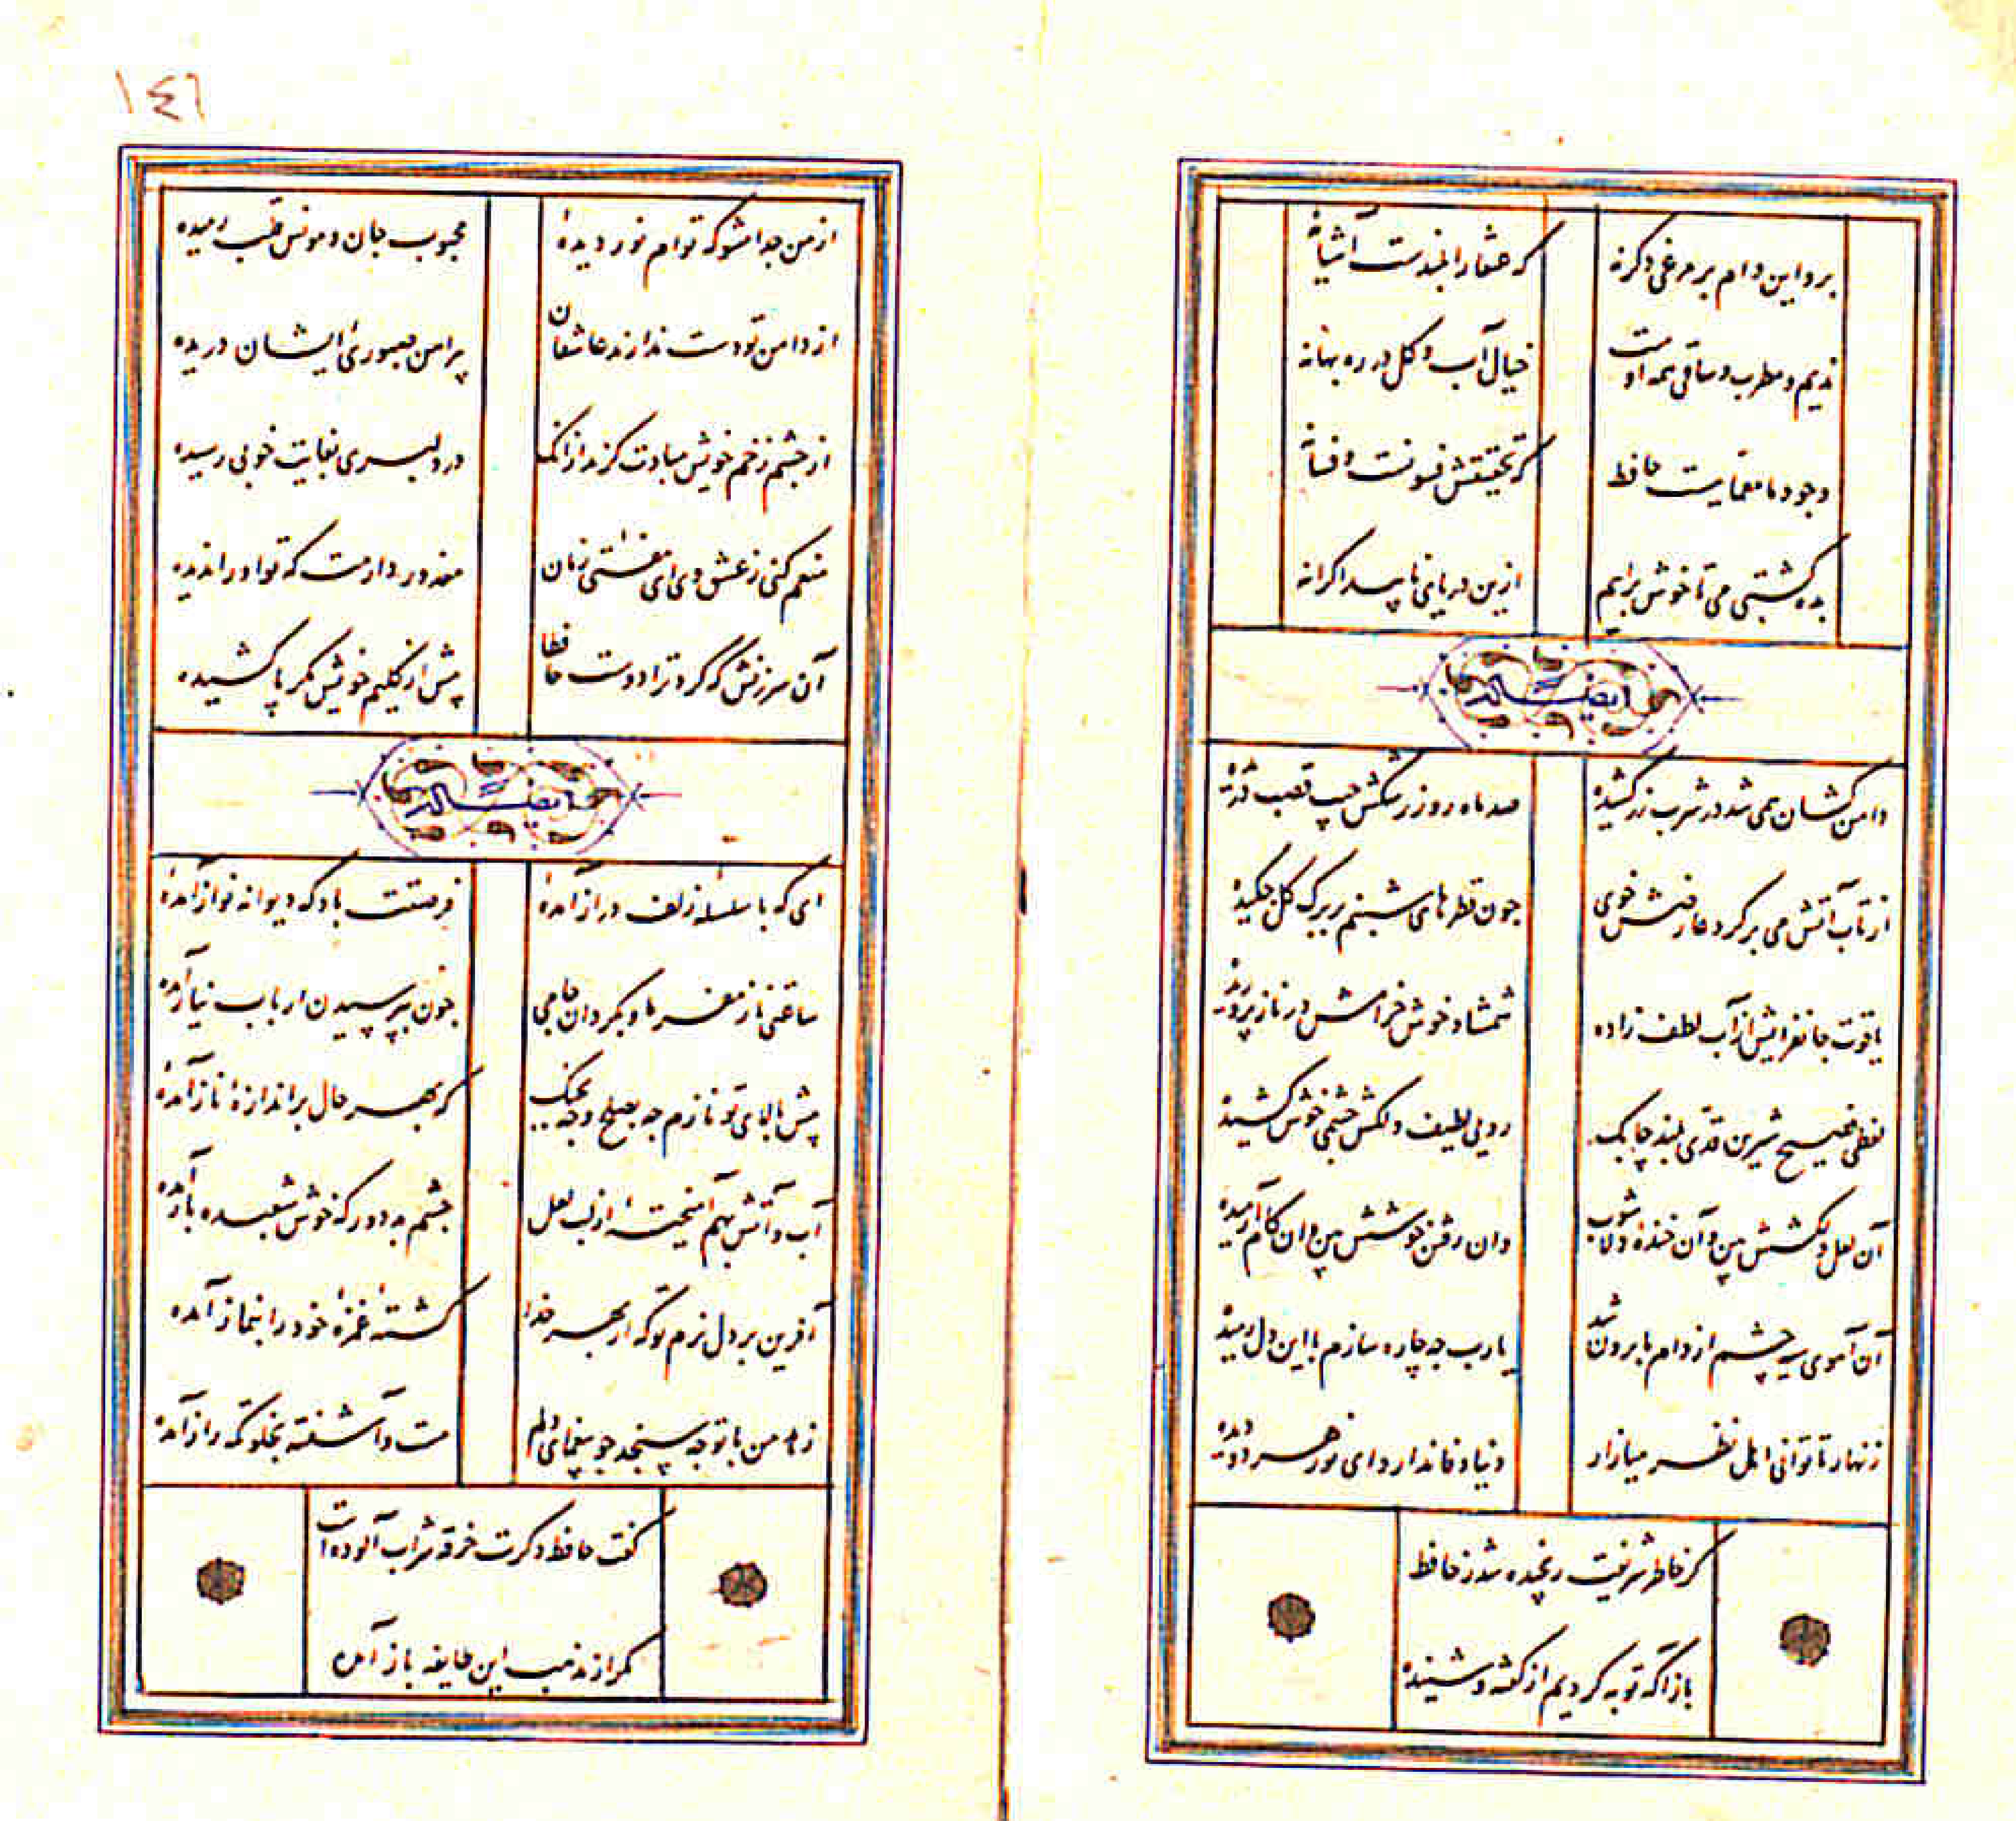 برو این دام بر مرغی دگر نه
که عنقا را بلندست آشیانه
ندیم و مطرب و ساقی همه اوست
خیال آب و گل در ره بهانه
وجود ما معمایست حافظ
که تحقیقش فسونست و فسانه
بده کشتی می تا خوش برایم
ازین دریای ناپیدا کرانه
ایضاً له
دامن کشان همی شد در شرب زر کشیده
صد ماه رو ز رشکش جیب قصب دریده
از تاب آتش می بر گرد عارضش خوی
چون قطرهای شبنم بر برک گل چکیده
یاقوت جانفزایش از آب لطف زاده
شمشاد خوش خرامش در ناز پروریده
لفظی فصیح شیرین قدی بلند چابک
رویی لطیف و دلکش چشمی خوش کشیده
آن لعل دلکشش بین و آن خنده دلاشوب
وان رفتن خوشش بین وان کام آرمیده
آن آهوی سیه چشم از دام ما برون شد
یارب چه چاره سازم با این دل رمیده
زنهار تا توانی اهل نظر میازار
دنیا وفا ندارد ای نور هر دو دیده
گر خاطر شریفت رنجیده شد ز حافظ
بازآ که توبه کردیم از گفته و شنیده
١٤٦
از من جدا مشو که توام نور دیدهٔ
محبوب جان و مونس قلب رمیده
از دامن تو دست ندارند عاشقان
پیراهن صبوری ایشان دریده
از چشم زخم خویش مبادت گزند از آنک
در دلبری بغایت خوبی رسیده
منعم کنی ز عشق وی ای مفتی زمان
معذور دارمت که تو او را ندیده
آن سرزنش که کرد ترا دوست حافظا
پیش از گلیم خویش مگر پا کشیده
ایضاً له
ای که با سلسلهٔ زلف دراز آمدهٔ
فرصتت باد که دیوانه نواز آمدهٔ
ساعتی ناز مفرما و بگردان جامی
چون بپرسیدن ارباب نیاز آمدهٔ
پیش بالای تو نازم چه بصلح و چه بجنک
که بهر حال برازندهٔ ناز آمدهٔ
آب و آتش بهم آمیختهٔ از لب لعل
چشم بد دور که خوش شعبده باز آمدهٔ
آفرین بر دل نرم تو که از بهر خدا
کشتهٔ غمزهٔ خود را بنماز آمدهٔ
زهد من با تو چه سنجد چو بیغمای دلم
مست و آشفته بخلوتگه راز آمدهٔ
گفت حافظ دگرت خرقه شراب آلوده است
مگر از مذهب این طایفه باز آمدهٔ